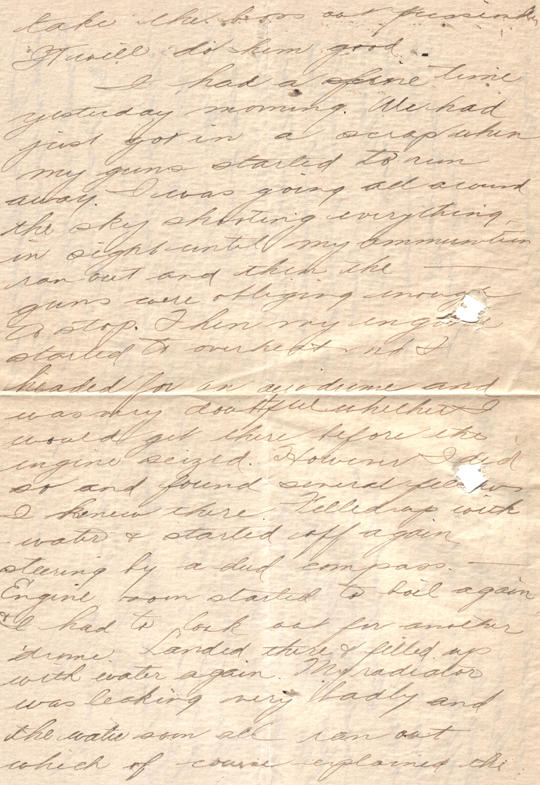 take the boys out
It will do him good
I had a fine time
yesterday morning. We had
just got in a scrap when
my guns started to run
away. I was going all around
the sky shooting everything
in sight until my ammunition
ran out and then the
guns were obliging enough
to stop. Then my engine
started to overheat and I
headed for an aerodrome and
was very doubtful whether I
would get there before the
engine seized. However I did
so and found several fellows
I knew there. Filled up with
water & started off again
steering by a dud compass.
Engine soon started to boil again
& I had to look out for another
'drome. Landed there & filled up
with water again. My radiator
was leaking very badly and
the water soon all ran out
which of course explained the